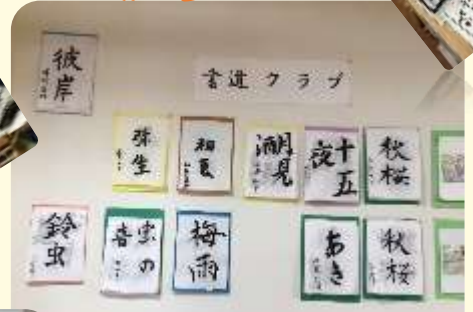 彼岸
書道クラブ
弥生
初夏
月見
十五夜
秋桜
鈴虫
虫の音
梅雨
あき
秋桜